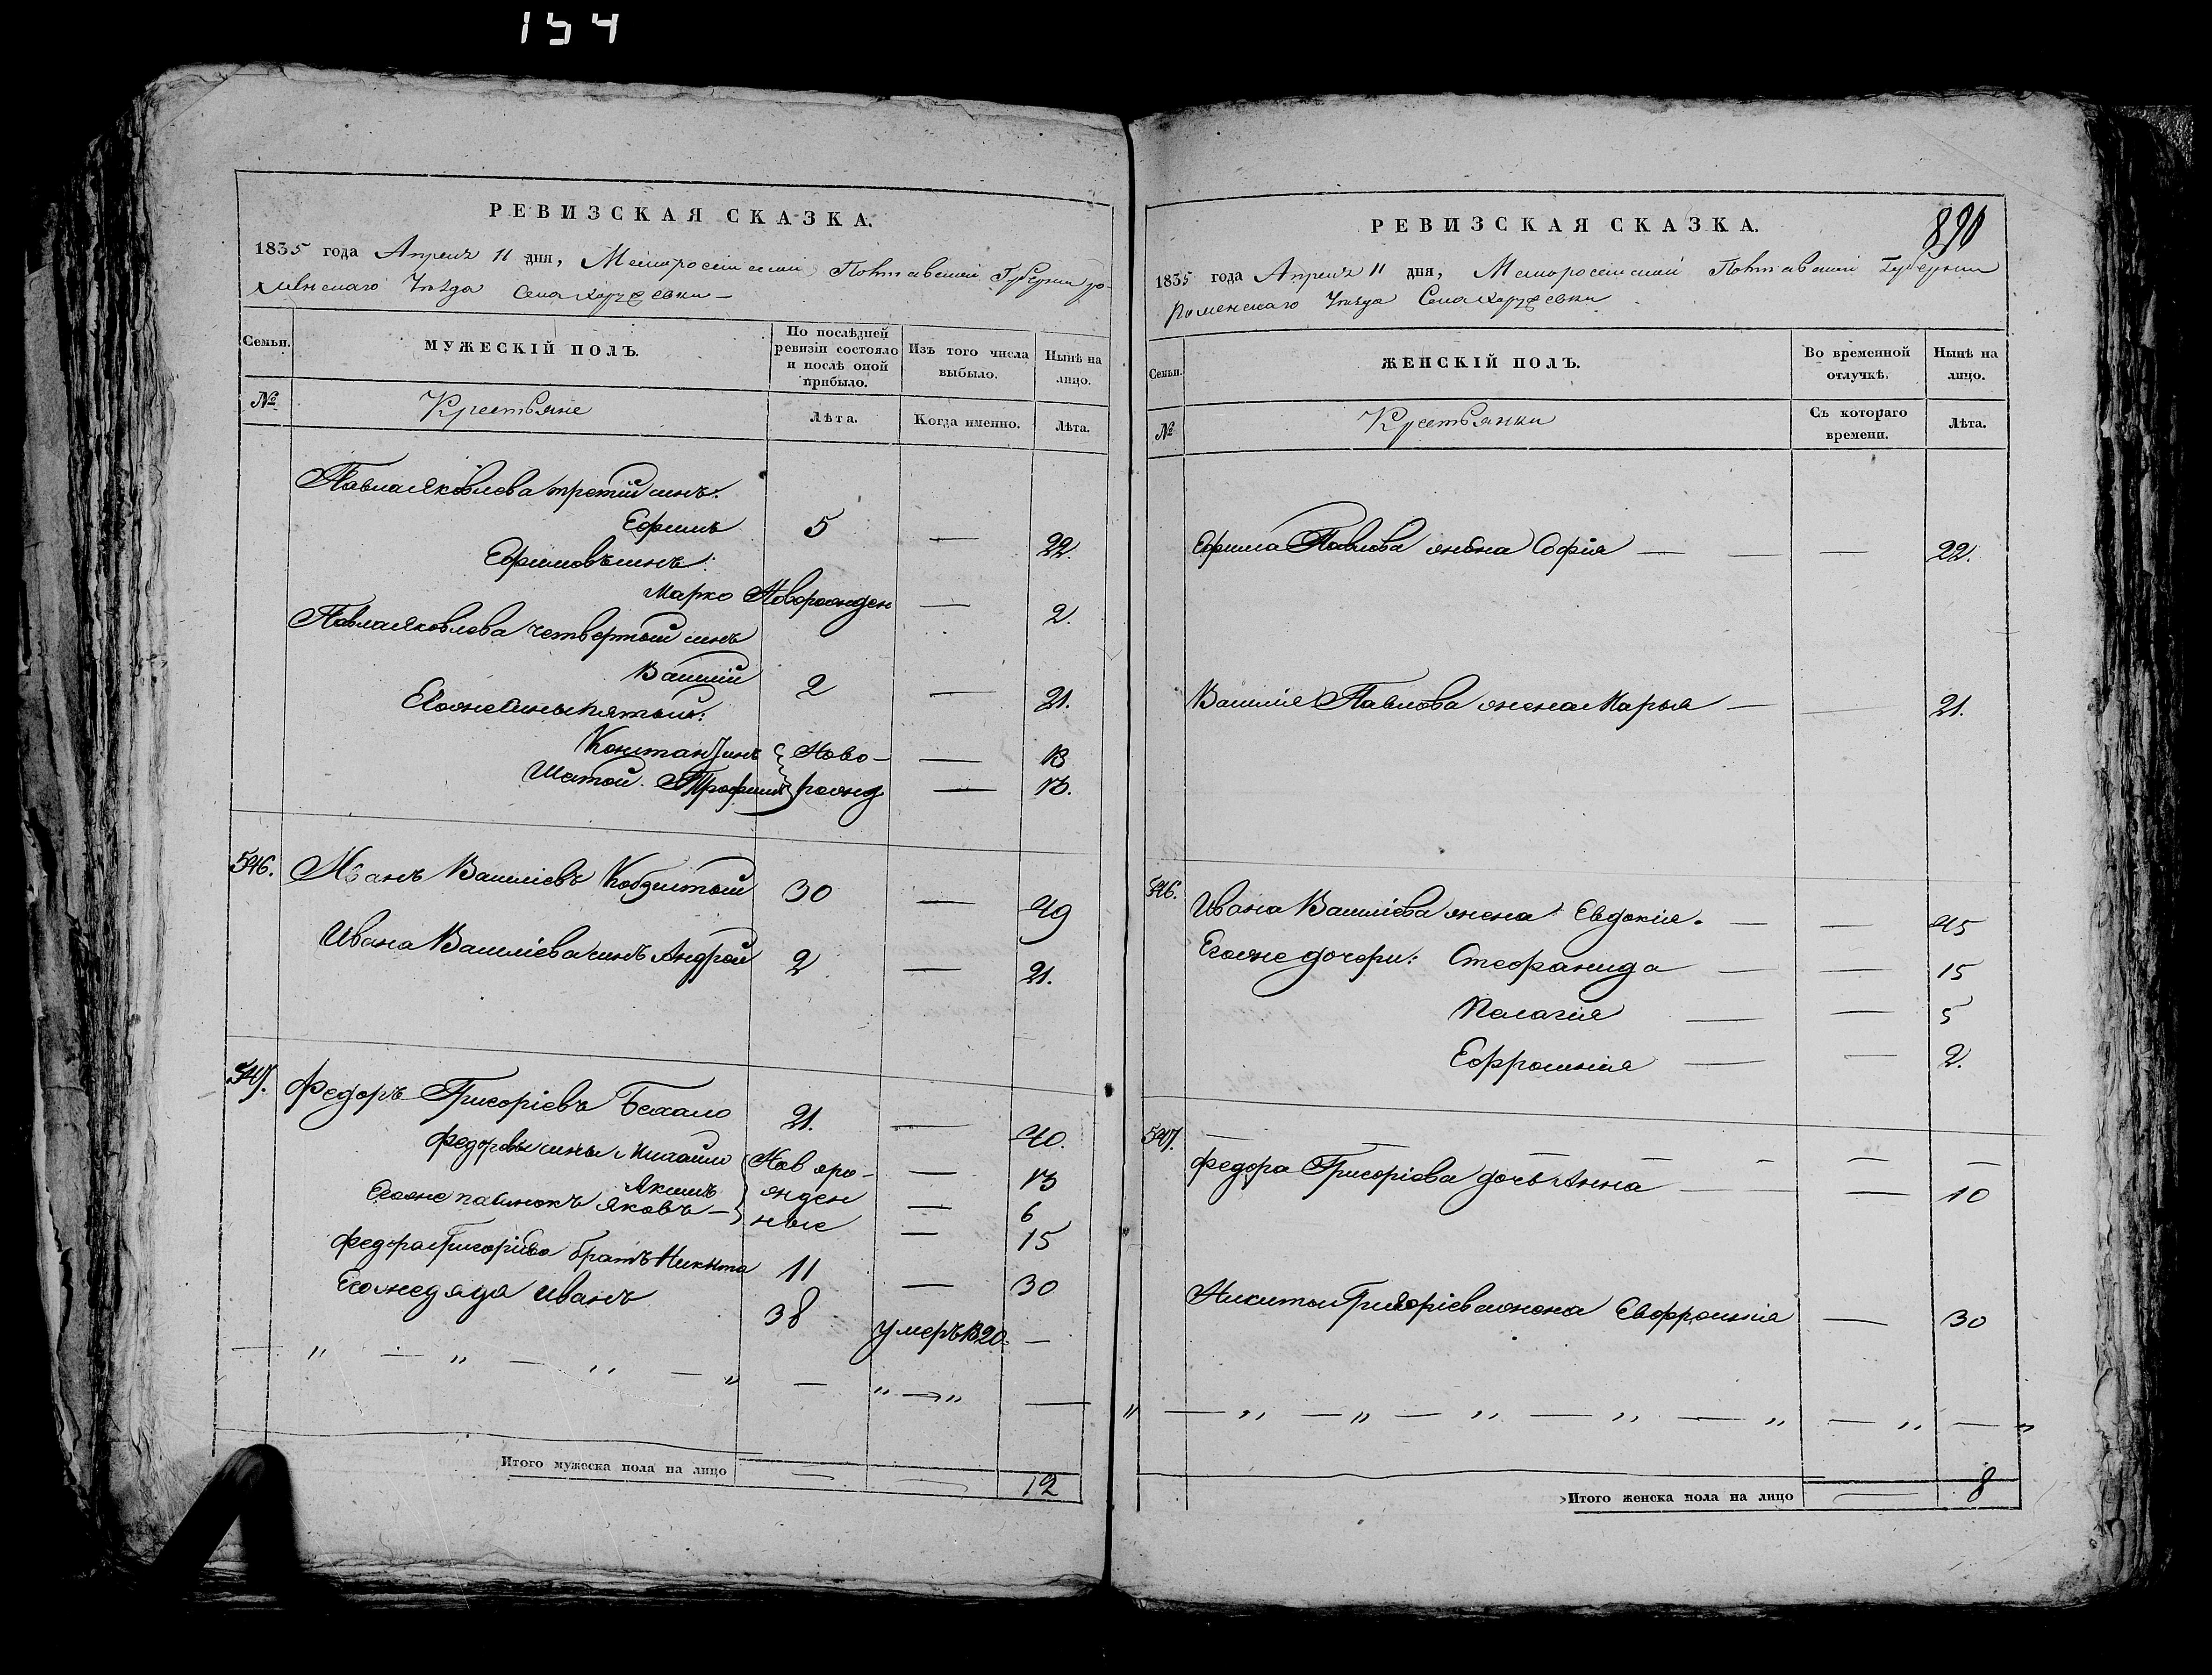 154
РЕВИЗСКАЯ СКАЗКА.
1835 года Апреля 11 дня, Малоросійской Полтавской Губерніи Ро-
менскаго Уѣзда Села Хоружевки
Семьи.
МУЖЕСКІЙ ПОЛЪ.
По послѣдней ревизіи состояло и послѣ оной прибыло.
Изъ того числа выбыло.
Нынѣ на лицо.
№
Крестьяне
Лѣта.
Когда именно.
Лѣта.
Павла Яковлева третій синъ:
Ефимъ 5 — 22.
Ефимовъ синъ:
Марко Новорожден — 2.
Павла Яковлева четвертый синъ
Василій 2 — 21.
Егоже сины пятый:
Константинъ Ново- — 13
Шестой. Трофимъ рожд — 13.
546. Иванъ Василіевъ Кобзистый 30 — 49
Ивана Василіева синъ Андрей 2 — 21.
547. Федоръ Григоріевъ Бехало 21. — 40.
Федоровы сины Михайло Новоро- — 13
Якимъ жден — 6
Егоже пасинокъ Яковъ — ные — 15
Федора Григоріева братъ Никита 11 — 30
Егоже дядя Иванъ 38 умеръ 820 —
Итого мужеска пола на лицо 12
890
РЕВИЗСКАЯ СКАЗКА.
1835 года Апреля 11 дня, Малоросійской Полтавской Губерніи
Роменскаго Уѣзда Села Хоружевки
Семьи.
ЖЕНСКІЙ ПОЛЪ.
Во временной отлучкѣ.
Нынѣ на лицо.
№
Крестьянки
Съ котораго времени.
Лѣта.
Ефима Павлова жена Софія — — — 22.
Василія Павлова жена Марья — — 21.
546. Ивана Василіева жена Евдокія. — — 45
Егоже дочери: Стефанида — — 15
Пелагія — — 5
Ефросинія — — 2.
547. — — — — — — —
Федора Григоріева дочь Анна — — 10
Никиты Григоріева жена Евфросинія — 30
Итого женска пола на лицо 8